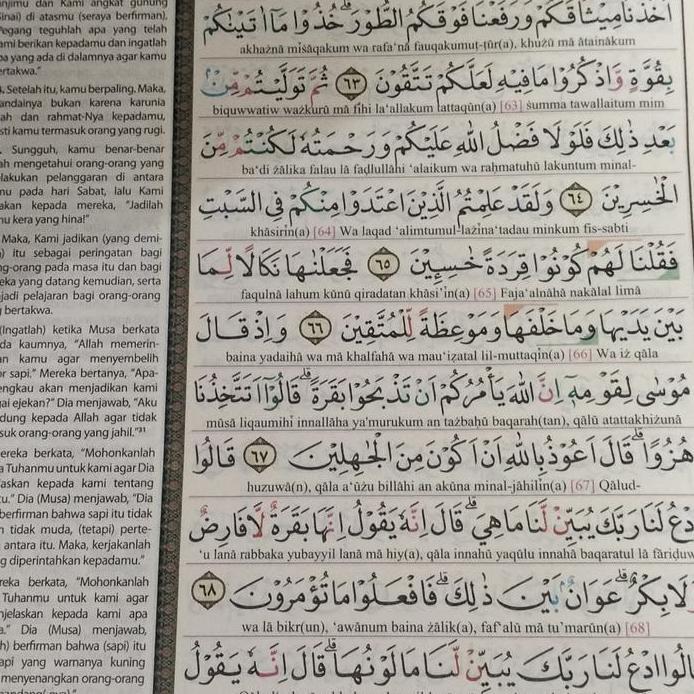 أَخَذْنَا مِيثَاقَكُمْ وَرَفَعْنَا فَوْقَكُمُ الطُّوْرَۗ خُذُوْا مَآ اٰتَيْنٰكُمْ
akhażnā mīṡāqakum wa rafa'nā fauqakumuṭ-ṭūr(a), khużū mā ātainākum
بِقُوَّةٍ وَّاذْكُرُوْا مَا فِيْهِ لَعَلَّكُمْ تَتَّقُوْنَ ٦٣ ثُمَّ تَوَلَّيْتُمْ مِّنْۢ
biquwwatiw ważkurū mā fīhi la'allakum tattaqūn(a) [63] ṡumma tawallaitum mim
بَعْدِ ذٰلِكَ فَلَوْلَا فَضْلُ اللّٰهِ عَلَيْكُمْ وَرَحْمَتُهٗ لَكُنْتُمْ مِّنَ
ba'di żālika falau lā faḍlullāhi 'alaikum wa raḥmatuhū lakuntum minal-
الْخٰسِرِيْنَ ٦٤ وَلَقَدْ عَلِمْتُمُ الَّذِيْنَ اعْتَدَوْا مِنْكُمْ فِى السَّبْتِ
khāsirīn(a) [64] Wa laqad 'alimtumul-lażīna'tadau minkum fis-sabti
فَقُلْنَا لَهُمْ كُوْنُوْا قِرَدَةً خٰسِـِٕيْنَ ٦٥ فَجَعَلْنٰهَا نَكَالًا لِّمَا
faqulnā lahum kūnū qiradatan khāsi'īn(a) [65] Faja'alnāhā nakālal limā
بَيْنَ يَدَيْهَا وَمَا خَلْفَهَا وَمَوْعِظَةً لِّلْمُتَّقِيْنَ ٦٦ وَاِذْ قَالَ
baina yadaihā wa mā khalfahā wa mau'iẓatal lil-muttaqīn(a) [66] Wa iż qāla
مُوْسٰى لِقَوْمِهٖٓ اِنَّ اللّٰهَ يَأْمُرُكُمْ اَنْ تَذْبَحُوْا بَقَرَةًۗ قَالُوْٓا اَتَتَّخِذُنَا
mūsā liqaumihī innallāha ya'murukum an tażbaḥū baqarah(tan), qālū atattakhiżunā
هُزُوًاۗ قَالَ اَعُوْذُ بِاللّٰهِ اَنْ اَكُوْنَ مِنَ الْجٰهِلِيْنَ ٦٧ قَالُوا
huzuwā(n), qāla a'ūżu billāhi an akūna minal-jāhilīn(a) [67] Qālud-
دْعُ لَنَا رَبَّكَ يُبَيِّنْ لَّنَا مَا هِيَۗ قَالَ اِنَّهٗ يَقُوْلُ اِنَّهَا بَقَرَةٌ لَّا فَارِضٌ
'u lanā rabbaka yubayyil lanā mā hiy(a), qāla innahū yaqūlu innahā baqaratul lā fāriḍuw
لَا بِكْرٌۗ عَوَانٌۢ بَيْنَ ذٰلِكَۗ فَافْعَلُوْا مَا تُؤْمَرُوْنَ ٦٨
wa lā bikr(un), 'awānum baina żālik(a), faf'alū mā tu'marūn(a) [68]
الُوا ادْعُ لَنَا رَبَّكَ يُبَيِّنْ لَّنَا مَا لَوْنُهَاۗ قَالَ اِنَّهٗ يَقُوْلُ
njimu dan Kami angkat gunung
Sinai) di atasmu (seraya berfirman),
Pegang teguhlah apa yang telah
ami berikan kepadamu dan ingatlah
pa yang ada di dalamnya agar kamu
ertakwa."
Setelah itu, kamu berpaling. Maka,
andainya bukan karena karunia
ah dan rahmat-Nya kepadamu,
sti kamu termasuk orang yang rugi.
Sungguh, kamu benar-benar
ah mengetahui orang-orang yang
lakukan pelanggaran di antara
mu pada hari Sabat, lalu Kami
akan kepada mereka, "Jadilah
nu kera yang hina!"
Maka, Kami jadikan (yang demi-
) itu sebagai peringatan bagi
ng-orang pada masa itu dan bagi
eka yang datang kemudian, serta
jadi pelajaran bagi orang-orang
bertakwa.
(Ingatlah) ketika Musa berkata
da kaumnya, "Allah memerin-
an kamu agar menyembelih
or sapi." Mereka bertanya, "Apa-
engkau akan menjadikan kami
ai ejekan?" Dia menjawab, "Aku
dung kepada Allah agar tidak
suk orang-orang yang jahil."31
ereka berkata, "Mohonkanlah
a Tuhanmu untuk kami agar Dia
askan kepada kami tentang
u." Dia (Musa) menjawab, "Dia
berfirman bahwa sapi itu tidak
n tidak muda, (tetapi) perte-
antara itu. Maka, kerjakanlah
g diperintahkan kepadamu."
reka berkata, "Mohonkanlah
Tuhanmu untuk kami agar
njelaskan kepada kami apa
a." Dia (Musa) menjawab,
h) berfirman bahwa (sapi) itu
api yang warnanya kuning
menyenangkan orang-orang